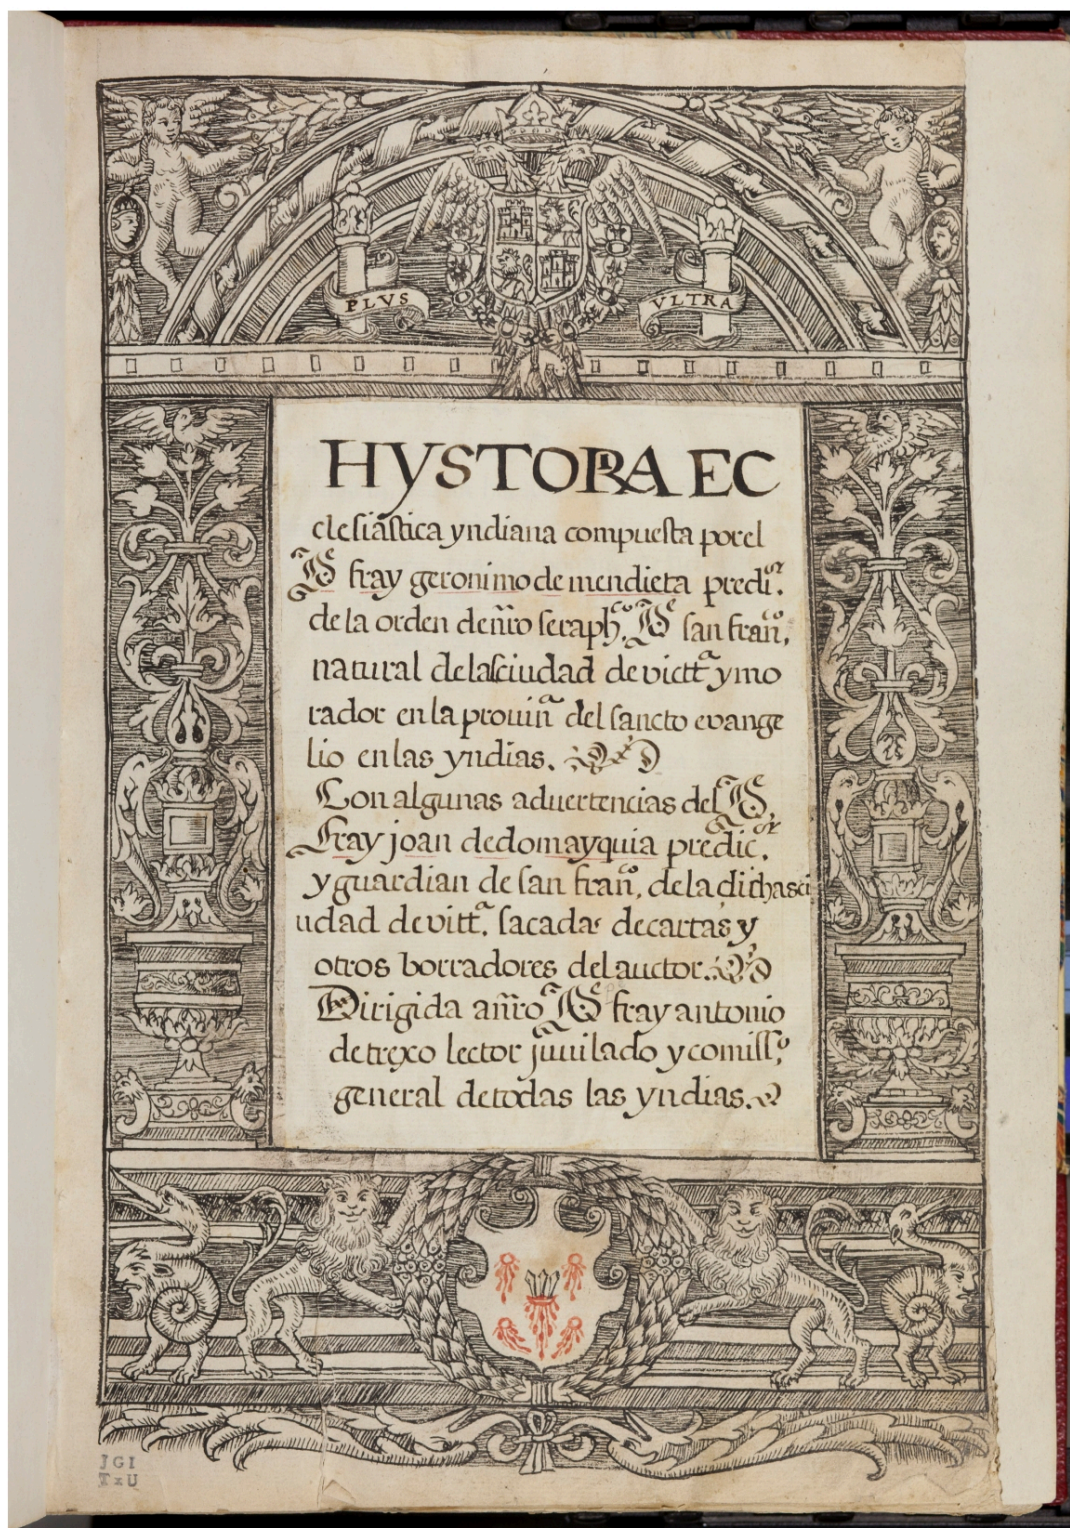 PLVS VLTRA
HYSTORIA EC
clesiastica yndiana compuesta por el
P fray geronimo de mendieta predi.or
de la orden de nr̃o seraph.co P san fran.co,
natural de la sciudad de victt.a y mo
rador en la prouin.a del sancto evange
lio en las yndias.
Con algunas aduertencias del P.
Fray joan de domayquia predic.or
y guardian de san fran.co, de la dicha sci
udad de vitt.a sacadas de cartas y
otros borradores del auctor.
Dirigida a nr̃o P fray antonio
de trexo lector juuilado y comiss.o
general de todas las yndias.
JGI
TxU